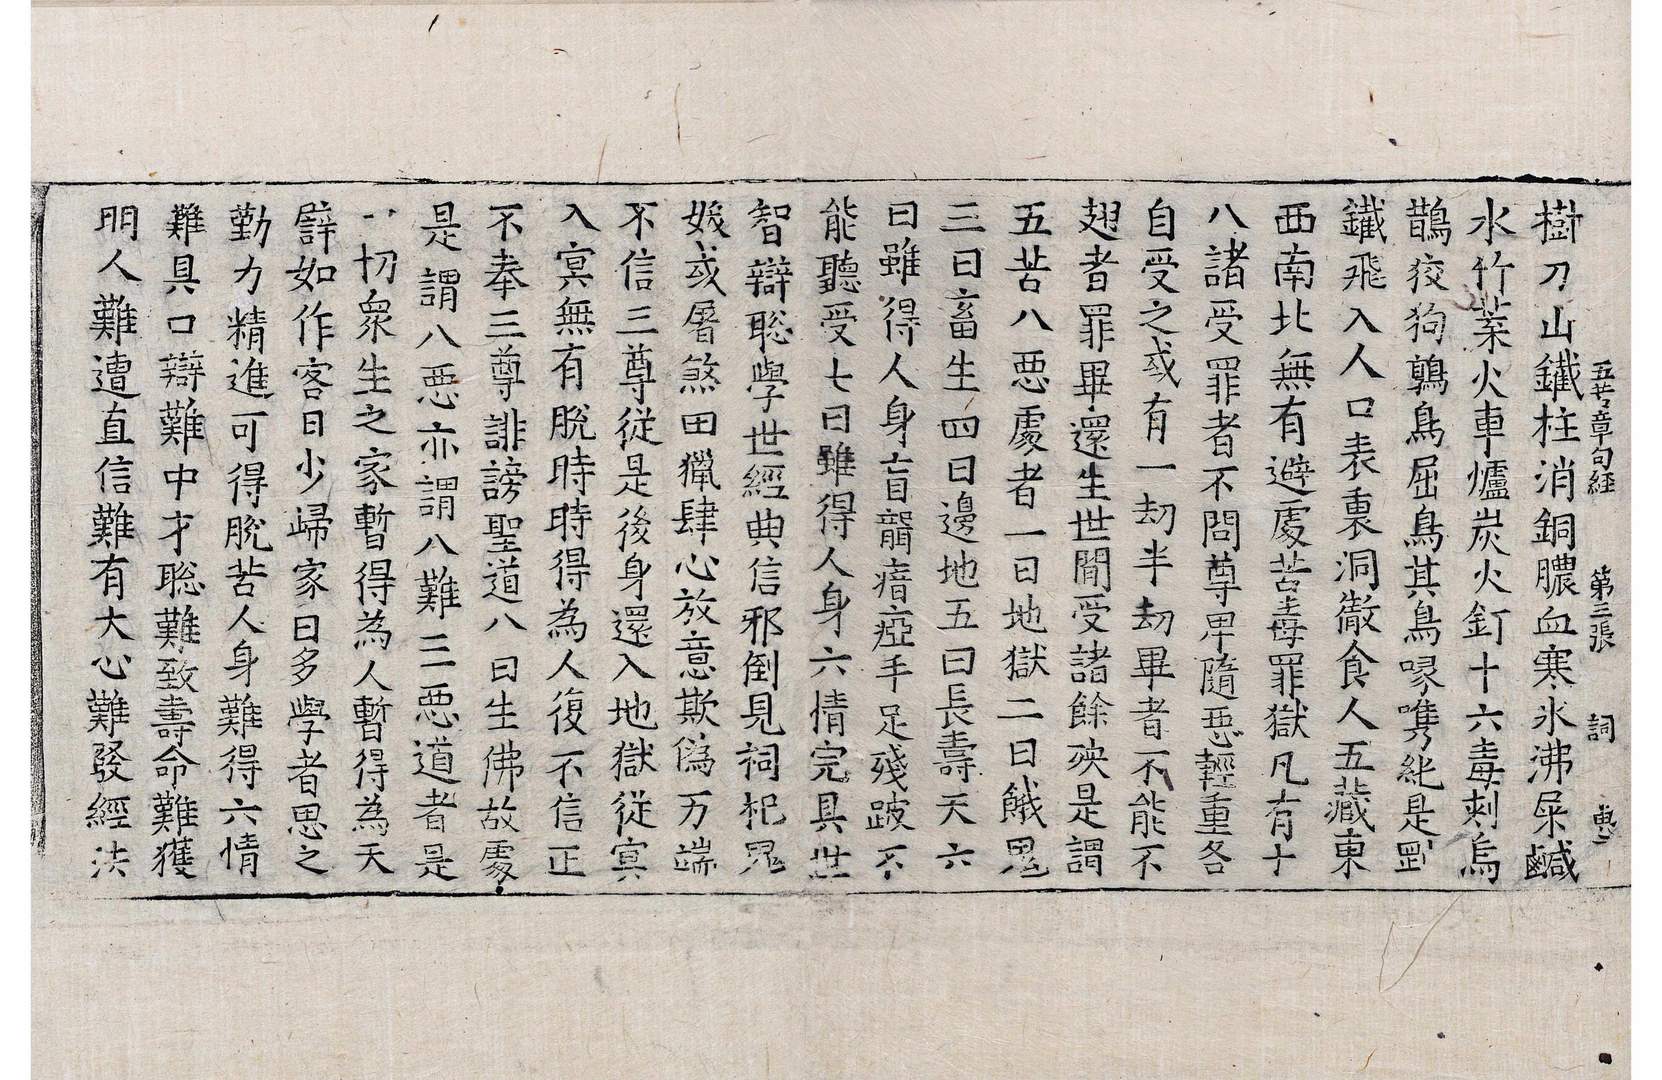 五苦章句経 第三張 詞
樹刀山鐵柱消銅膿血寒氷沸屎鹹
水竹葉火車爐炭火釘十六毒刺烏
鵲狡狗鷻鳥屈鳥其鳥喙嘴純是剛
鐵飛入人口表裏洞徹食人五藏東
西南北無有避處苦毒罪獄凡有十
八諸受罪者不問尊卑隨惡輕重各
自受之或有一劫半劫畢者不能不
翅者罪畢還生世間受諸餘殃是謂
五苦八惡處者一曰地獄二曰餓鬼
三曰畜生四曰邊地五曰長壽天六
曰雖得人身盲聾瘖瘂手足殘跛不
能聽受七曰雖得人身六情完具世
智辯聡學世經典信邪倒見祠杞鬼
妭或屠煞田獵肆心放意欺偽万端
不信三尊從是後身還入地獄從㝠
入㝠無有脫時時得為人復不信正
不奉三尊誹謗聖道八曰生佛故處
是謂八惡亦謂八難三惡道者是
一切衆生之家暫得為人暫得為天
譬如作客日少歸家日多學者思之
勤力精進可得脫苦人身難得六情
難具口辯難中才聡難致壽命難獲
明人難遭直信難有大心難發經法